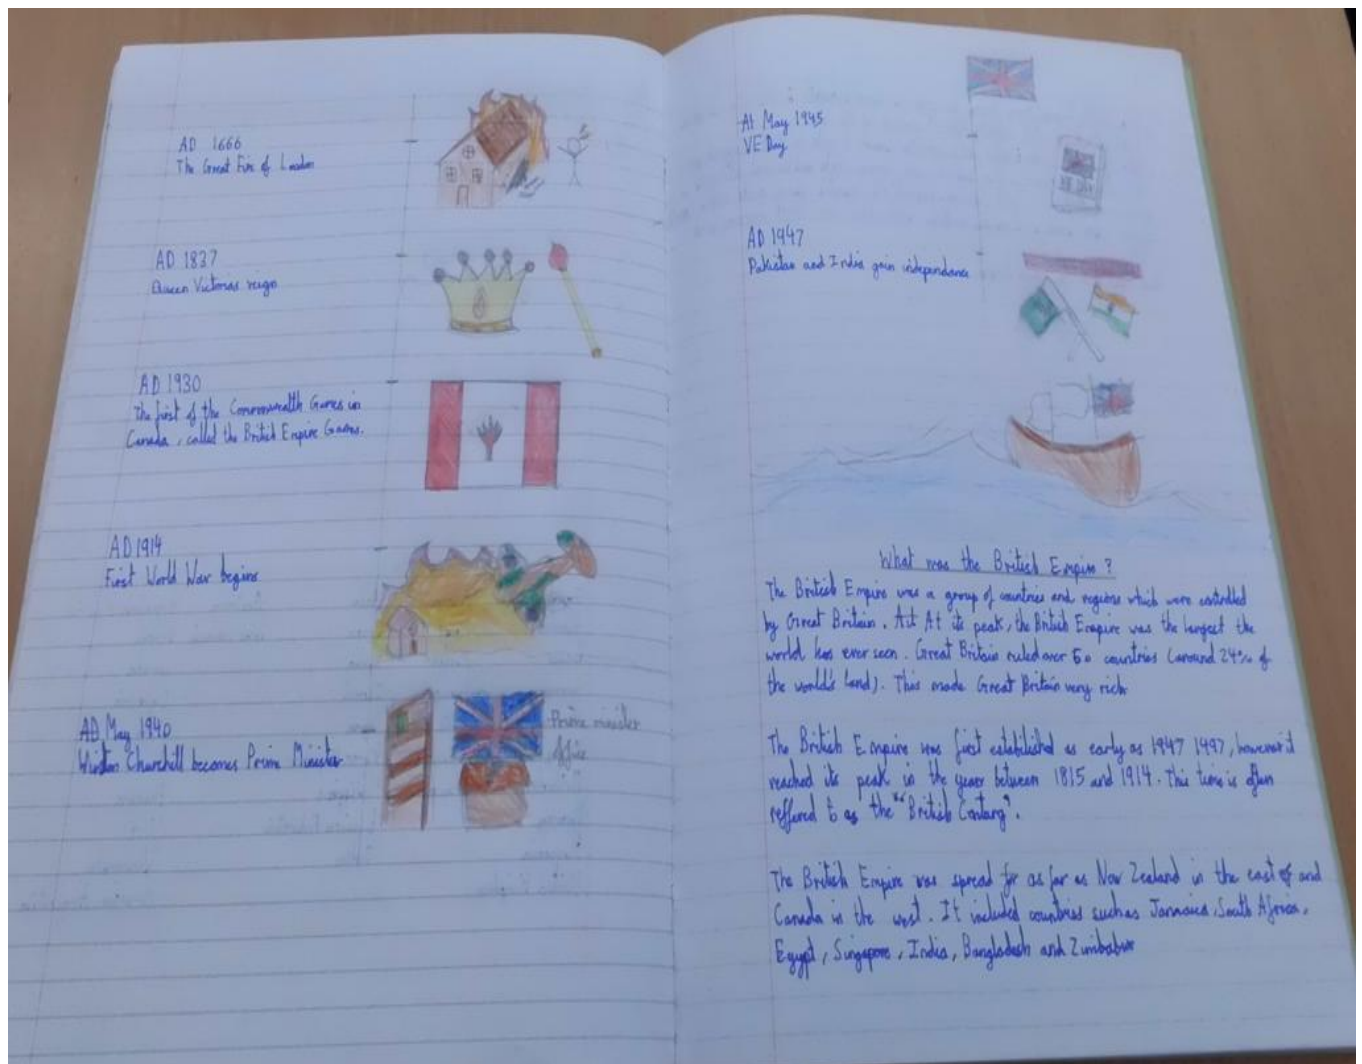 AD 1666
The Great Fire of London
AD 1837
Queen Victorias reign
AD 1930
The first of the Commonwealth Games in
Canada, called the British Empire Games.
AD 1914
First World War begins
AD May 1940
Winston Churchill becomes Prime Minister
Prime minister
office
At May 1945
VE Day
AD 1947
Pakistan and India gain independance
What was the British Empire?
The British Empire was a group of countries and regions which were controlled
by Great Britain. At its peak, the British Empire was the largest the
world has ever seen. Great Britain ruled over 50 countries (around 24% of
the world's land). This made Great Britain very rich
The British Empire was first established as early as 1947 1497, however it
reached its peak in the year between 1815 and 1914. This time is often
reffered to as the "British Century".
The British Empire was spread for as far as New Zealand in the east of and
Canada in the west. It included countries such as Jamaica, South Africa,
Egypt, Singapore, India, Bangladesh and Zimbabwe